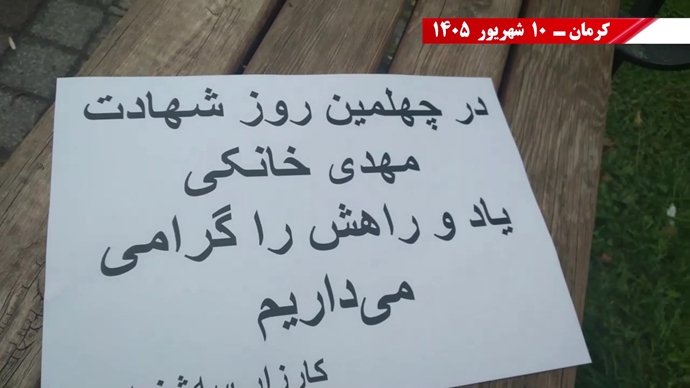 کرمان ـ ۱۰ شهریور ۱۴۰۵
در چهلمین روز شهادت
مهدی خانکی
یاد و راهش را گرامی
می‌داریم
کارزار